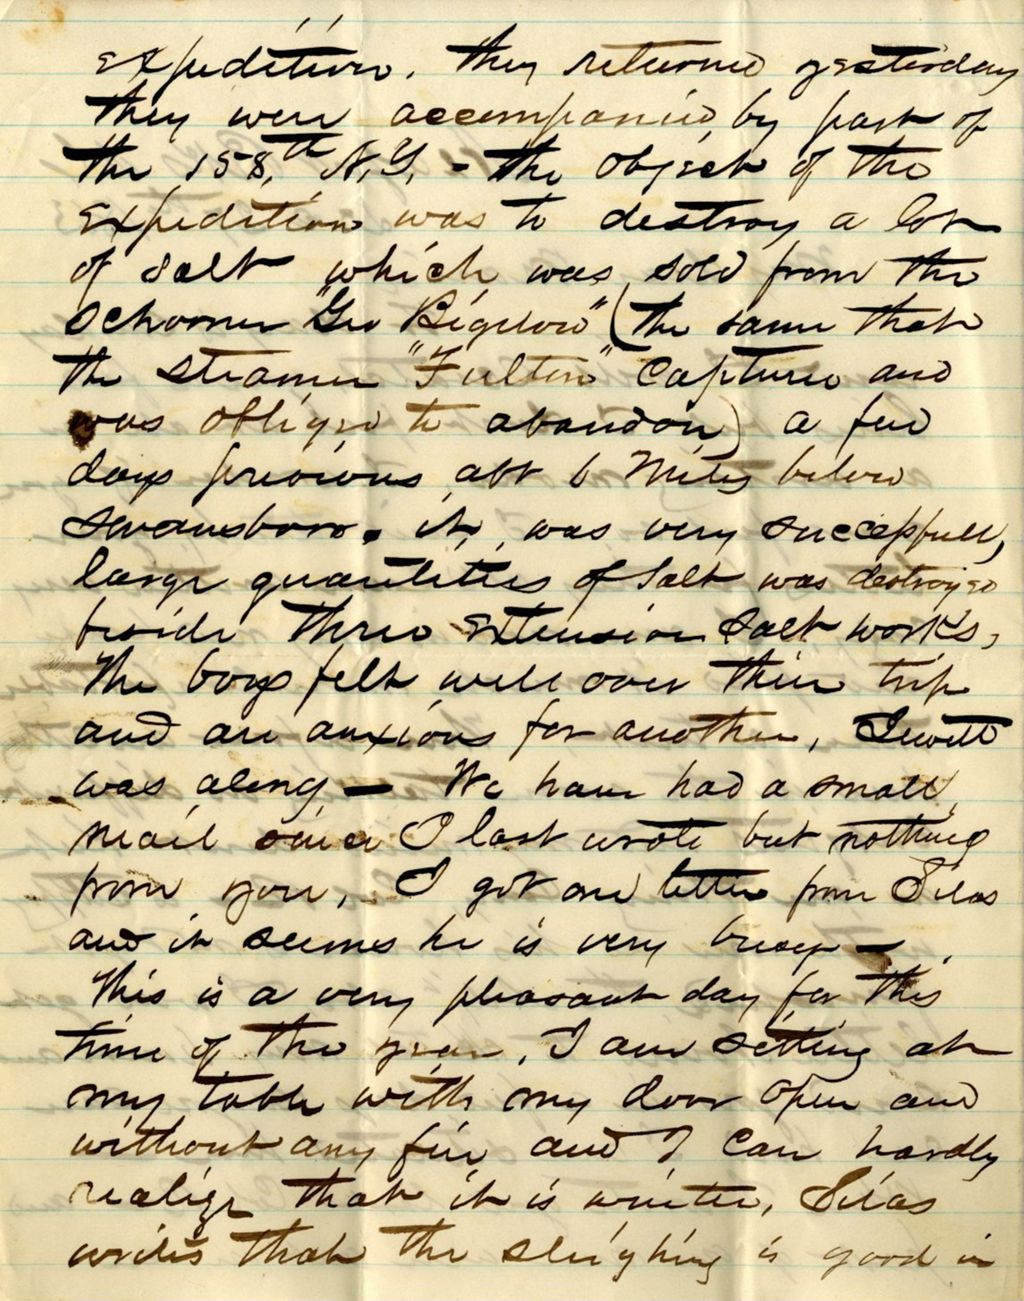 expedition. they returned yesterday
they were accompanied by part of
the 158,th N,Y, - the object of the
expedition was to destroy a lot
of salt which was sold from the
schooner "Geo Bigelow" (the same that
the steamer "Fulton" captured and
was obliged to abandon) a few
days previous abt 6 miles below
Swansboro. it, was very successfull,
large quantities of salt was destroyed
beside three extension salt works,
The boys felt well over their trip
and are anxious for another,
was along — We have had a small
mail since I last wrote but nothing
from you, I got one letter from Silas
and it seems he is very busy —
This is a very pleasant day for this
time of the year, I am setting at
my table with my door open and
without any fire and I can hardly
realize that it is winter, Silas
writes that the sleighing is good in